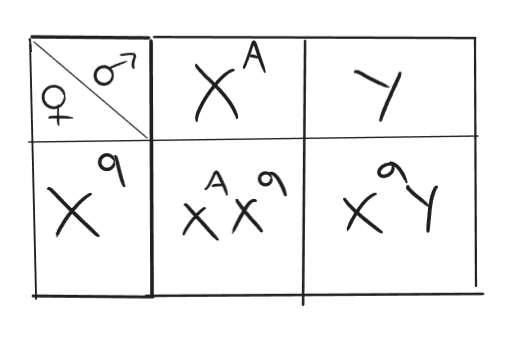 ♀ ♂ X^A Y
X^a X^A X^a X^a Y